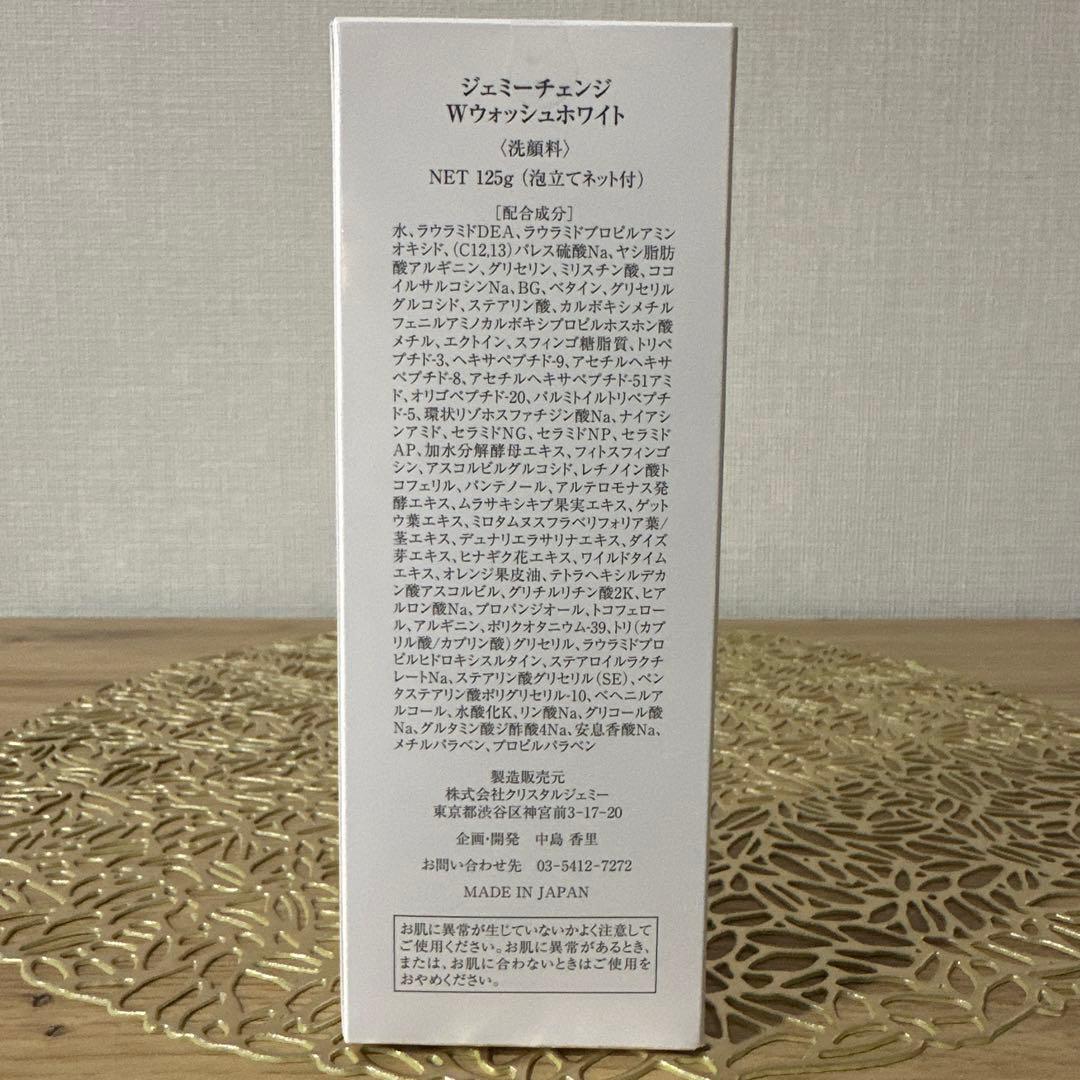 ジェミーチェンジ
Wウォッシュホワイト
〈洗顔料〉
NET 125g（泡立てネット付）
［配合成分］
水、ラウラミドDEA、ラウラミドプロピルアミン
オキシド、(C12,13)パレス硫酸Na、ヤシ脂肪
酸アルギニン、グリセリン、ミリスチン酸、ココ
イルサルコシンNa、BG、ベタイン、グリセリル
グルコシド、ステアリン酸、カルボキシメチル
フェニルアミノカルボキシプロピルホスホン酸
メチル、エクトイン、スフィンゴ糖脂質、トリペ
プチド-3、ヘキサペプチド-9、アセチルヘキサ
ペプチド-8、アセチルヘキサペプチド-51アミ
ド、オリゴペプチド-20、パルミトイルトリペプチ
ド-5、環状リゾホスファチジン酸Na、ナイアシ
ンアミド、セラミドNG、セラミドNP、セラミド
AP、加水分解酵母エキス、フィトスフィンゴ
シン、アスコルビルグルコシド、レチノイン酸ト
コフェリル、パンテノール、アルテロモナス発
酵エキス、ムラサキシキブ果実エキス、ゲット
ウ葉エキス、ミロタムヌスフラベリフォリア葉/
茎エキス、デュナリエラサリナエキス、ダイズ
芽エキス、ヒナギク花エキス、ワイルドタイム
エキス、オレンジ果皮油、テトラヘキシルデカ
ン酸アスコルビル、グリチルリチン酸2K、ヒア
ルロン酸Na、プロパンジオール、トコフェロー
ル、アルギニン、ポリクオタニウム-39、トリ(カプ
リル酸/カプリン酸)グリセリル、ラウラミドプロ
ピルヒドロキシスルタイン、ステアロイルラクチ
レートNa、ステアリン酸グリセリル(SE)、ペン
タステアリン酸ポリグリセリル-10、ベヘニルア
ルコール、水酸化K、リン酸Na、グリコール酸
Na、グルタミン酸ジ酢酸4Na、安息香酸Na、
メチルパラベン、プロピルパラベン
製造販売元
株式会社クリスタルジェミー
東京都渋谷区神宮前3-17-20
企画・開発　中島 香里
お問い合わせ先　03-5412-7272
MADE IN JAPAN
お肌に異常が生じていないかよく注意して
ご使用ください。お肌に異常があるとき、
または、お肌に合わないときはご使用を
おやめください。